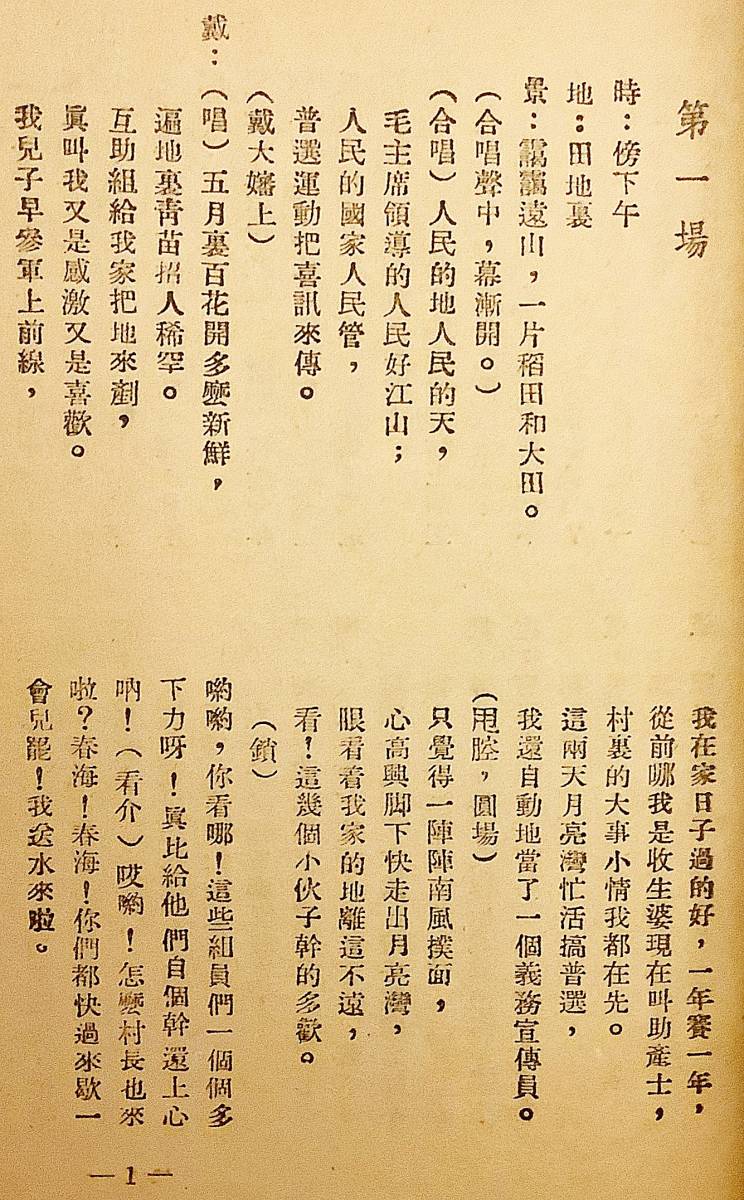 第一場
時：傍下午
地：田地裏
景：靄靄遠山，一片稻田和大田。
（合唱聲中，幕漸開。）
（合唱）人民的地人民的天，
毛主席領導的人民好江山；
人民的國家人民管，
普選運動把喜訊來傳。
（戴大嬸上）
戴：（唱）五月裏百花開多麼新鮮，
遍地裏靑苗招人稀罕。
互助組給我家把地來剷，
眞叫我又是感激又是喜歡。
我兒子早參軍上前線，
我在家日子過的好，一年賽一年，
從前哪我是收生婆現在叫助產士，
村裏的大事小情我都在先。
這兩天月亮灣忙活搞普選，
我還自動地當了一個義務宣傳員。
（甩腔，圓場）
只覺得一陣陣南風撲面，
心高興脚下快走出月亮灣，
眼看着我家的地離這不遠，
看！這幾個小伙子幹的多歡。
（鎖）
喲喲，你看哪！這些組員們一個個多
下力呀！眞比給他們自個幹還上心
吶！（看介）哎喲！怎麼村長也來
啦？春海！春海！你們都快過來歇一
會兒罷！我送水來啦。
—1—